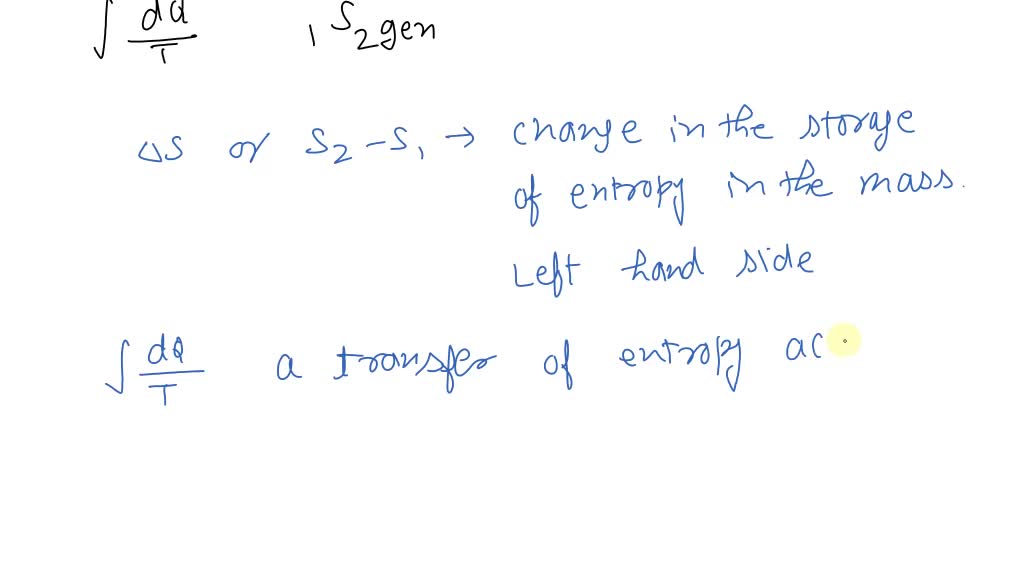 ∫ dQ/T ₁S₂gen
ΔS or S₂-S₁ → change in the storage
of entropy in the mass.
Left hand side
∫ dQ/T a transfer of entropy ac